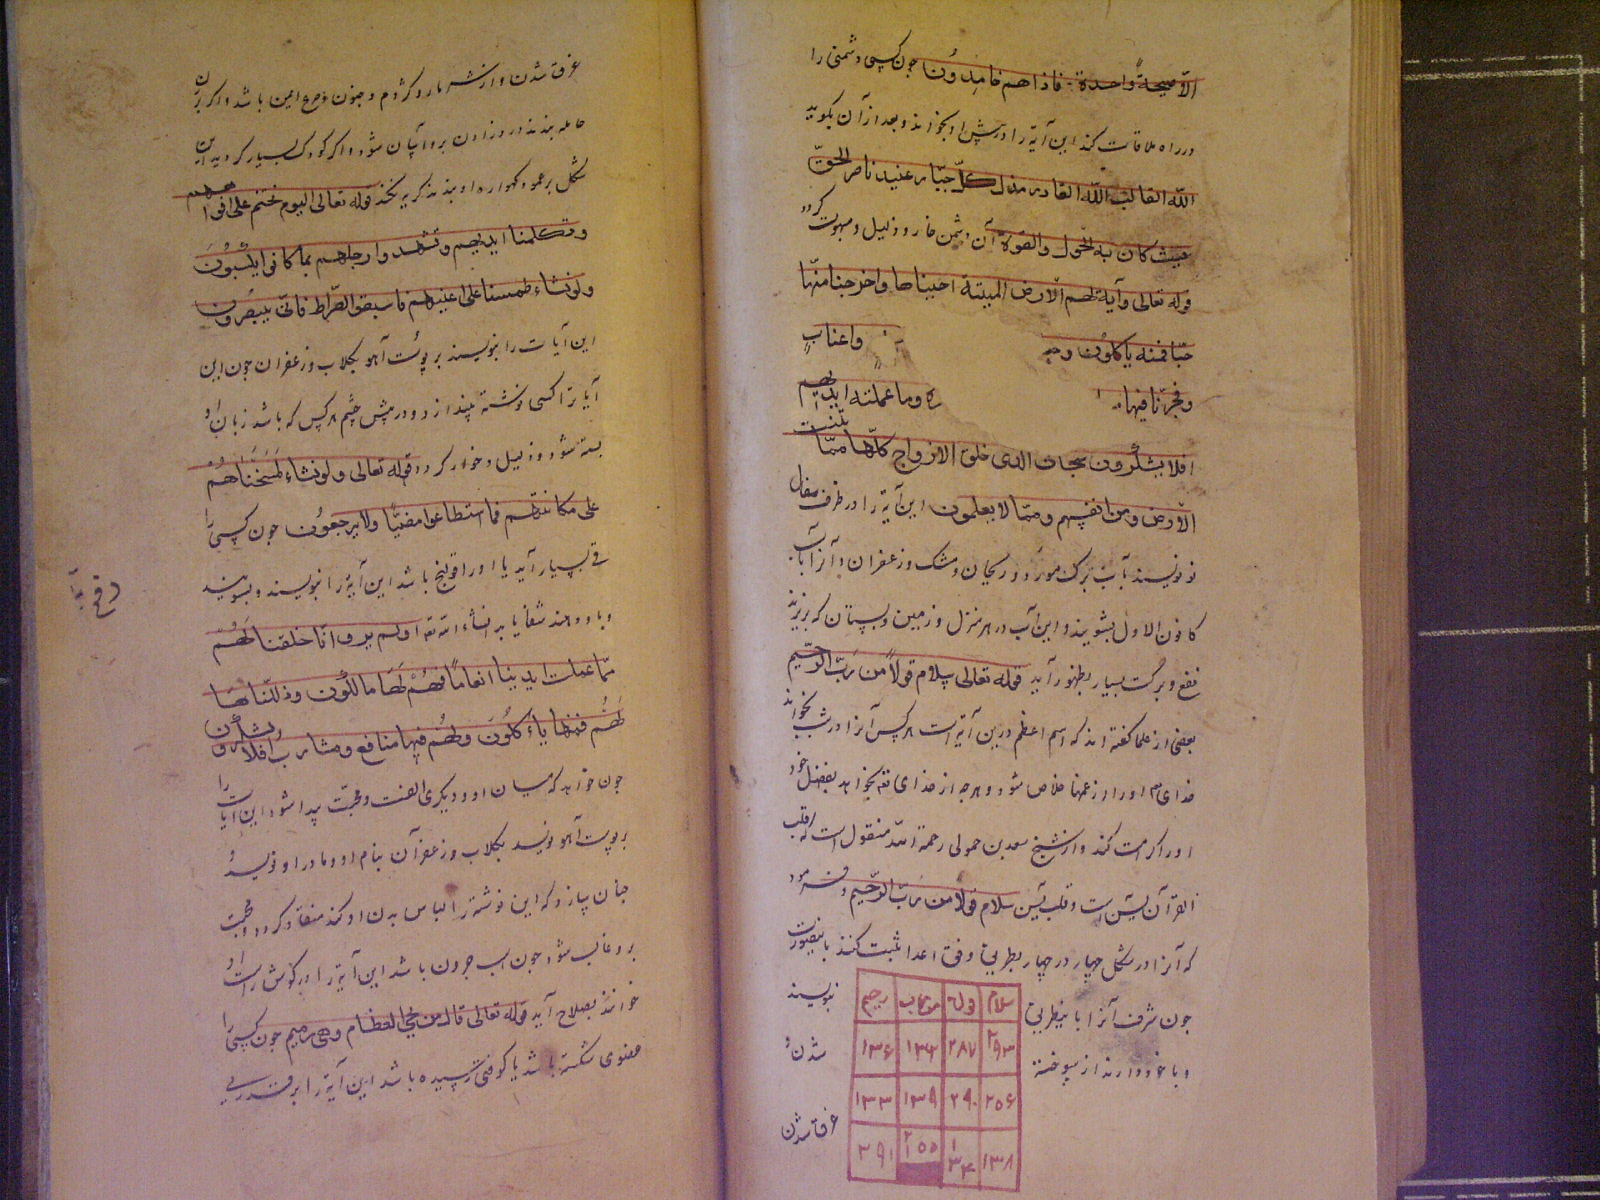 الّا صیحة واحدة فاذا هم خامدون جون کسی دشمنی را
در راه ملاقات کند این آیة را در پیش او بخواند و بعد از آن بکوید
اللّه الغالب اللّه القادر مذل کلّ جبّار عنید ناصر الحقّ
حیث کان به الحول والقوة آن دشمن خار و ذلیل و مبهوت کردد
قوله تعالی وآیة لهم الارض المیتة احییناها واخرجنا منها
حبّا فمنه یاکلون وجـ واعناب
وفجّرنا فیها ره وما عملته ایدیهم
افلا یشکرون سبحان الذی خلق الازواج کلّها ممّا تنبت
الارض ومن انفسهم وممّا لا یعلمون این آیة را در ظرف سفال
نو نویسند بآب برک مورد و ریحان و مشک و زعفران و آنرا بآب
کانون الاول بشویند و این آب در هر منزل و زمین و بستان که بریزند
نفع و برکت بسیار بظهور آید قوله تعالی سلام قولاً من ربّ الرّحیم
بعضی از علما کفته اند که اسم اعظم درین آیة است هر کس آنرا در شب بخواند
خدای او را از غمها خلاص شود و هرجه از خدای تعه بخواهد بفضل خود
او را کرامت کند و از شیخ سعد بن حمولی رحمة اللّه منقول است که قلب
القرآن یس است و قلب یس سلام قولا من ربّ الرّحیم و فرمود
که آنرا در شکل جهار در جهار بطریق وفق اعدا ثبت کنند باینصورت
جون شرف آنرا باینطریق نبویسند
و با خود دارند از سوخته شدن و
غرق شدن
سلام قولا من رب رحیم
۲۹۳ ۲۸۷ ۱۳۲ ۱۳۶
۲۵۶ ۲۹۰ ۱۳۹ ۱۳۳
۱۳۸ ۱۳۴ ۲۵۵ ۲۹۱
غرق شدن و از شر مار و کژدم و جنون و صرع امین باشد و اکر بر زن
حامله بندند در وزادن بروا آسان شود و اکر کودک بسیار کرید این
شکل بر عمود کهواره او بندند کریه نکند قوله تعالی الیوم نختم علی افواههم
وتکلمنا ایدیهم وتشهد وارجلهم بما کانوا یکسبون
ولو نشاء لطمسنا علی اعینهم فاستبقو الصّراط فانّی یبصرون
این آیات را بنویسند بر پوست آهو بکلاب و زعفران جون این
آیاترا کسی نوشته بیندازد و در پیش جشم هر کس که باشد زبان او
بسته شود و ذلیل و خوار کردد قوله تعالی ولو نشاء لمسخناهم
علی مکانتهم فما استطاعوا مضیّا ولا یرجعون جون کسی را
قی بسیار آید یا او را قولنج باشد این آیة را بنویسند و بشویند
و باو دهند شفا یابد انشاء اللّه تعه اولم یروا انّا خلقنا لهم
ممّا عملت ایدینا انعاماً فهم لها مالکون وذللناها
لهم فمنها یاءکلون ولهم فیها منافع ومشارب افلا یشکرون
جون خواهد که میان او و دیکری الفت و محبّت پیدا شود این آیات را
بر پوست آهو نویسد بکلاب و زعفرآن بنام او و مادر او نویسد و
جنان سازد که این نوشته را لباس بدن او کند منقاد کردد و محبت
برو غالب شود جون اسب حرون باشد این آیة را در کوش راست او
خوانند بصلاح آید قوله تعالی قال من یحی العظام وهی رمیم جون کسی را
عضوی شکسته باشد یا کوفتی رسیده باشد این آیة را بر قدری